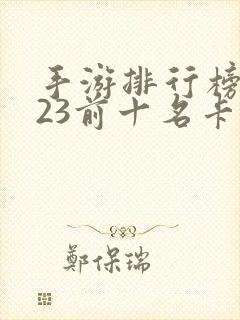 手游排行榜
23前十名卡
鄭保瑞